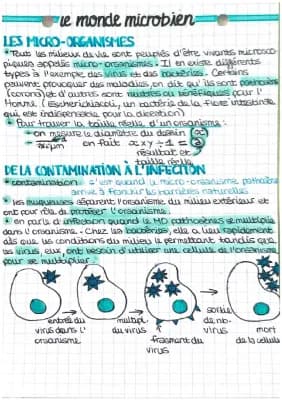 Le monde microbien
LES MICRO-ORGANISMES
* Tout les milieux de vie sont peuplés d'être vivants microsco-
piques appelés micro-organismes. Il en existe différents
types à l'exemple des virus et des bactéries. Certains
peuvent provoquer des maladies, on dit qu'ils sont pathogènes
(corona) et d'autres sont neutres ou bénéfiques pour l'
Homme (Escherichiacoli, un bactérie de la flore intestinale
qui est indispensable pour la digestion)
* Pour trouver la taille réelle d'un organisme :
→ on mesure le diamètre du dessin (x)
on fait x × y ÷ 1 =
résultat et
taille réelle
DE LA CONTAMINATION À L'INFECTION
* contamination : c'est quand le micro-organisme pathogène
arrive à franchir les barrières naturelles
* les muqueuses séparent l'organisme du milieu extérieur et
ont pour rôle de protéger l'organisme.
* on parle d'infection quand le MO pathogènes se multiplie
dans l'organisme. Chez les bactéries, elle a lieu rapidement
dès que les conditions du milieu le permettent tandis que
les virus, eux, ont besoin d'utiliser une cellule de l'organisme
pour se multiplier.
entrée du
virus dans l'
organisme
multipl.
du virus
fragment du
virus
sortie
de no.
virus
mort
de la cellule